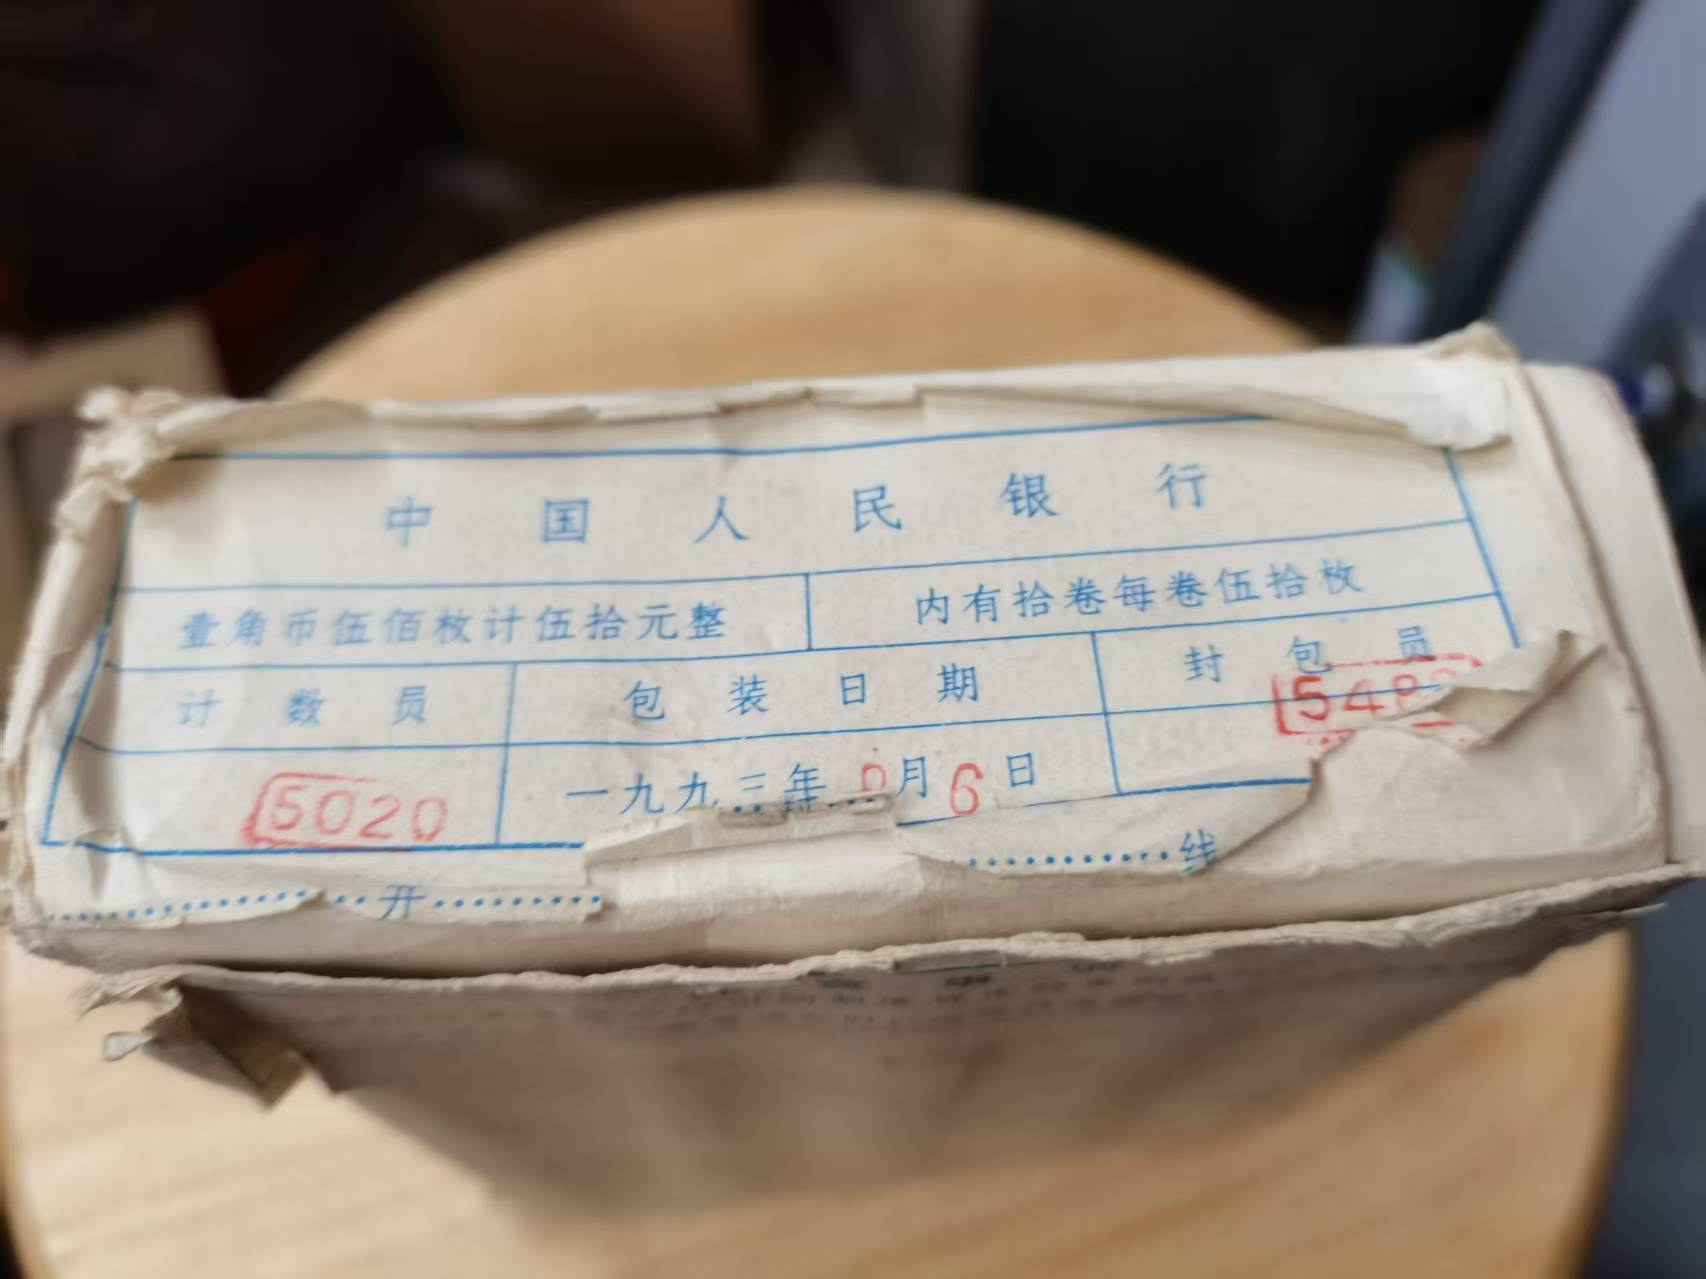 中国人民银行
壹角币伍佰枚计伍拾元整 内有拾卷每卷伍拾枚
计数员 包装日期 封包员
5020 一九九三年 月6日 548
开 线